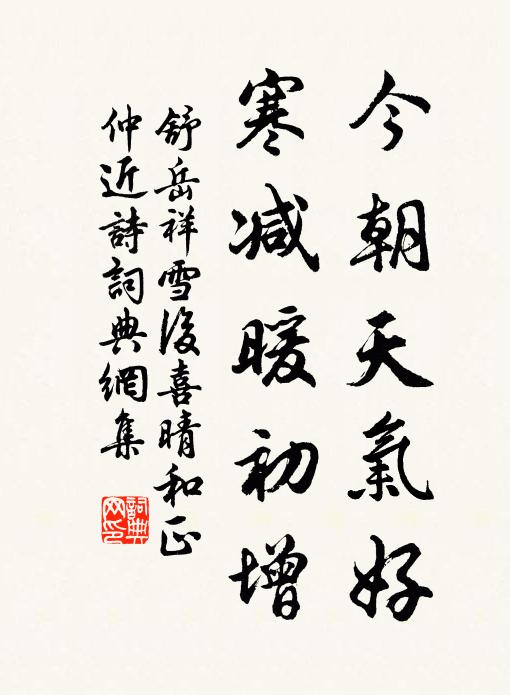 今朝天氣好
寒減暖初增
舒岳祥雪後喜晴和正
仲近詩詞典網集
詞典网印